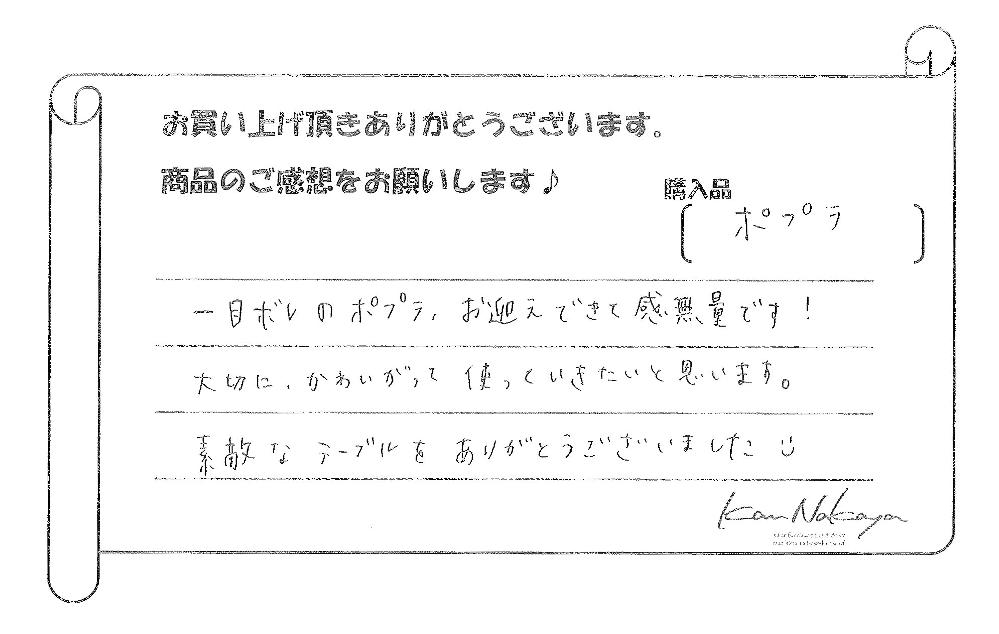 お買い上げ頂きありがとうございます。
商品のご感想をお願いします♪
購入品
〔 ポプラ 〕
一目ボレのポプラ、お迎えできて感無量です！
大切に、かわいがって使っていきたいと思います。
素敵なテーブルをありがとうございました☺
Kan Nakaya